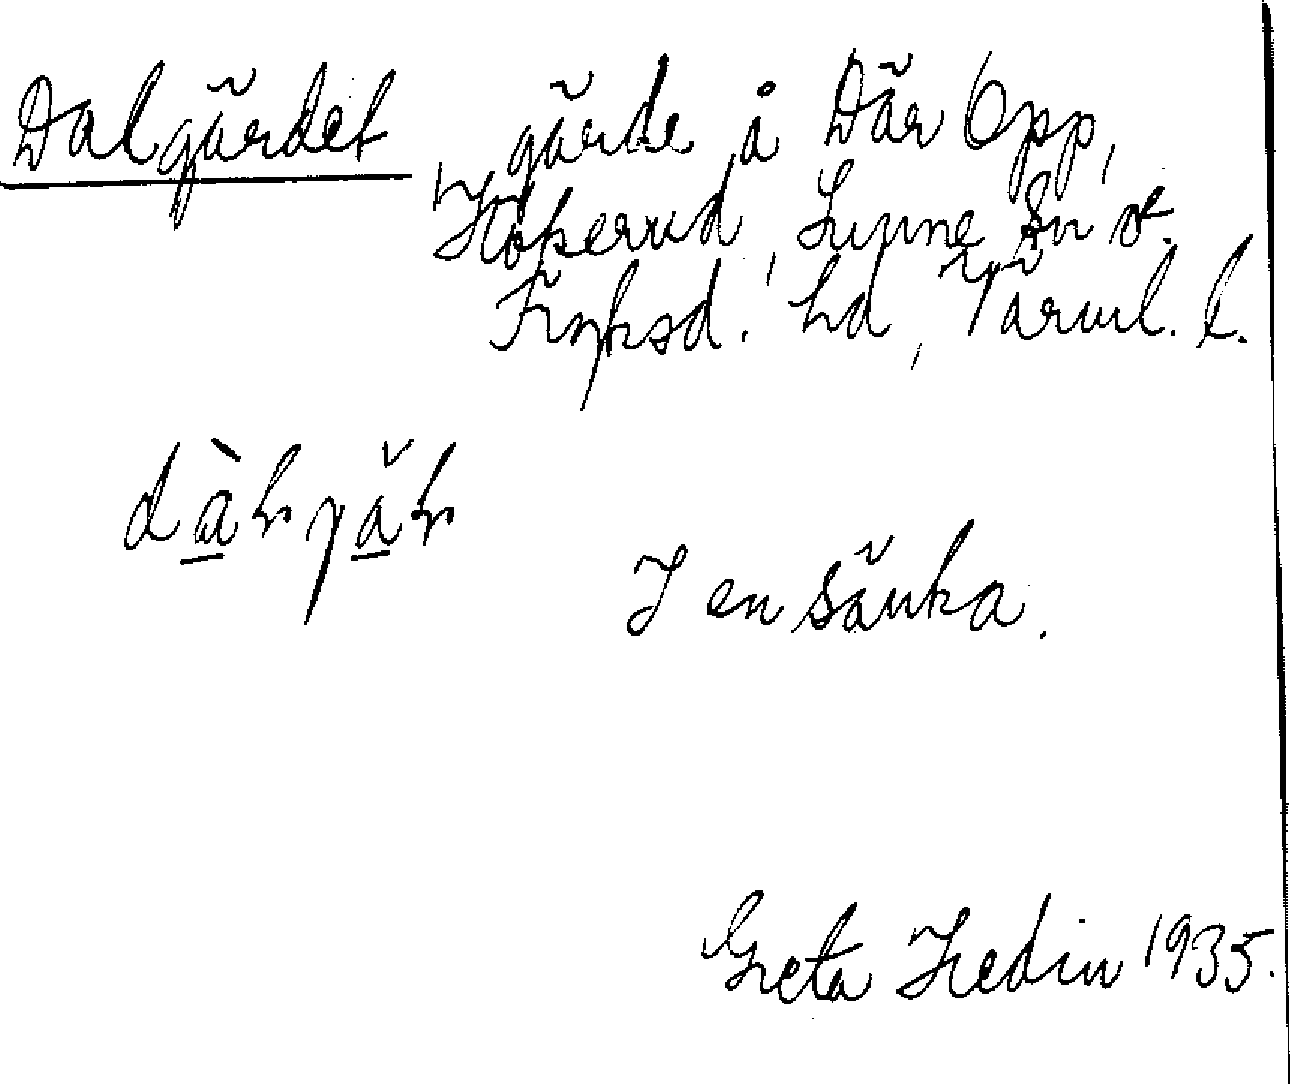 Dalgärdet, gärde å Där Opp,
Hökerud, Lysne Sn o.
Fryksd. hd, Värml. l.
I en sänka.
Greta Hedin 1935.